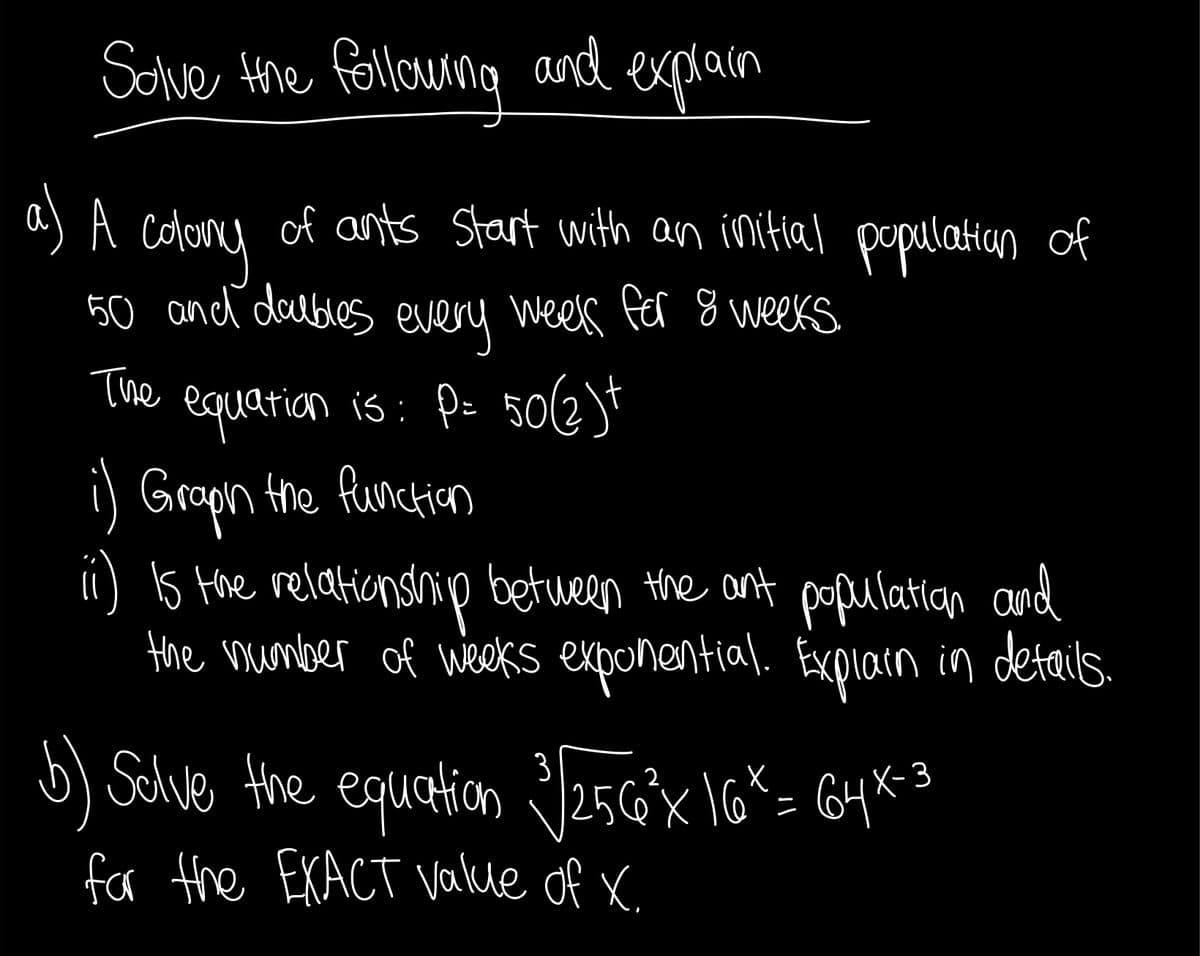 Solve the following and explain
a) A colony of ants start with an initial population of
50 and doubles every week for 8 weeks.
The equation is: P= 50(2)^t
i) Graph the function
ii) Is the relationship between the ant population and
the number of weeks exponential. Explain in details.
b) Solve the equation ∛256² x 16^x = 64^x-3
for the EXACT value of x.